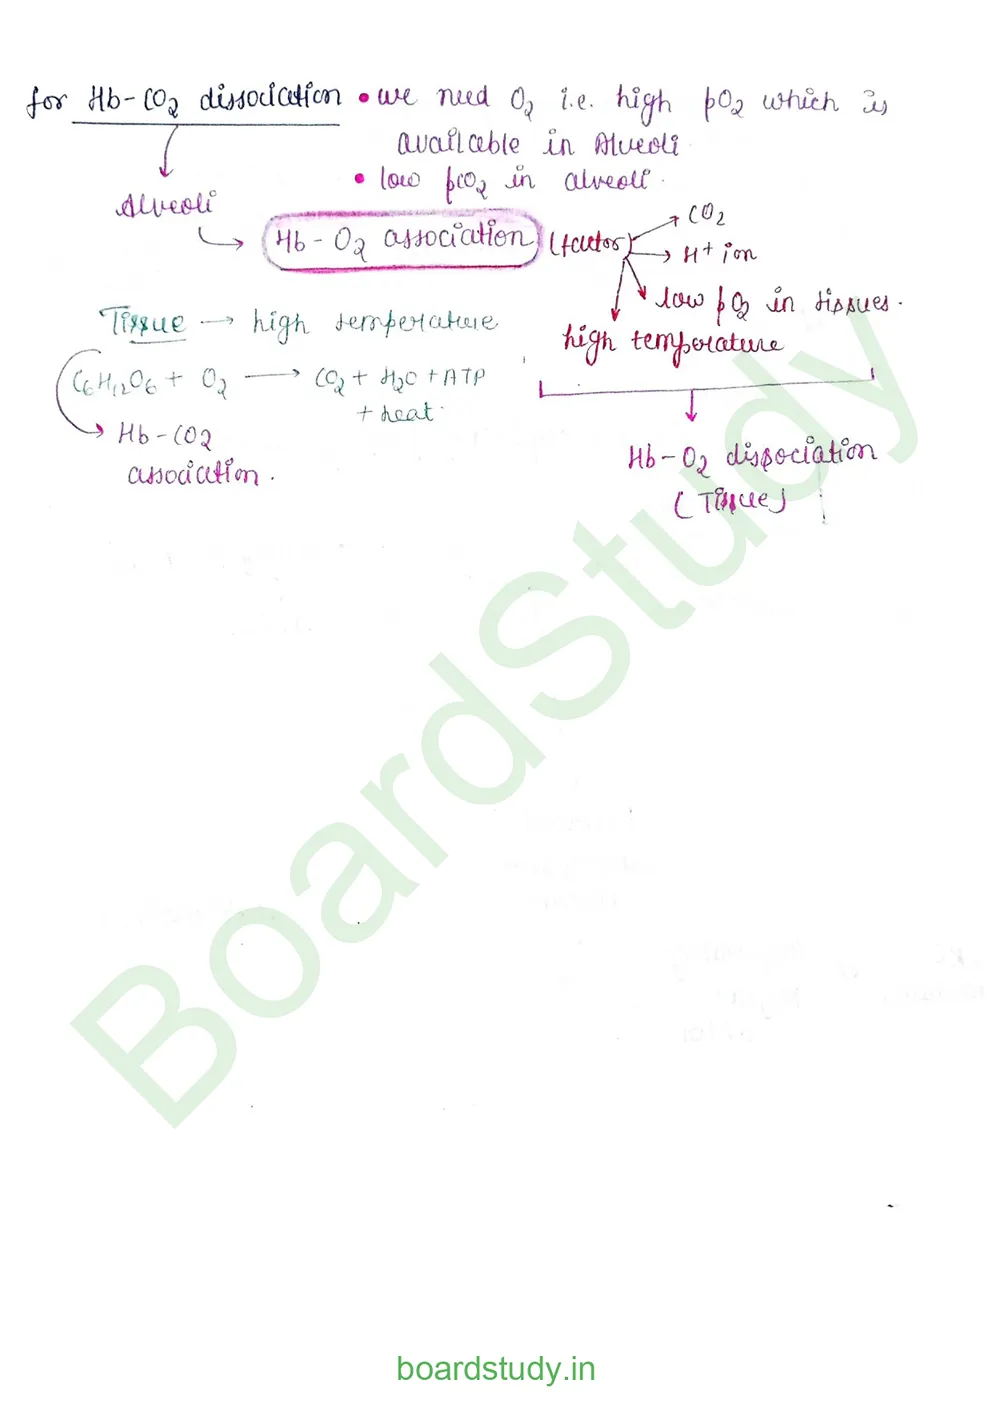 for Hb-CO2 dissociation • we need O2 i.e. high pO2 which is
available in Alveoli.
• low pCO2 in alveoli.
Alveoli
Hb-O2 association (factor)
CO2
H+ ion
low pO2 in tissues.
high temperature
Tissue → high temperature
C6H12O6 + O2 → CO2 + H2O + ATP
+ heat.
Hb-CO2
association.
Hb-O2 dissociation
(Tissue)
BoardStudy
boardstudy.in